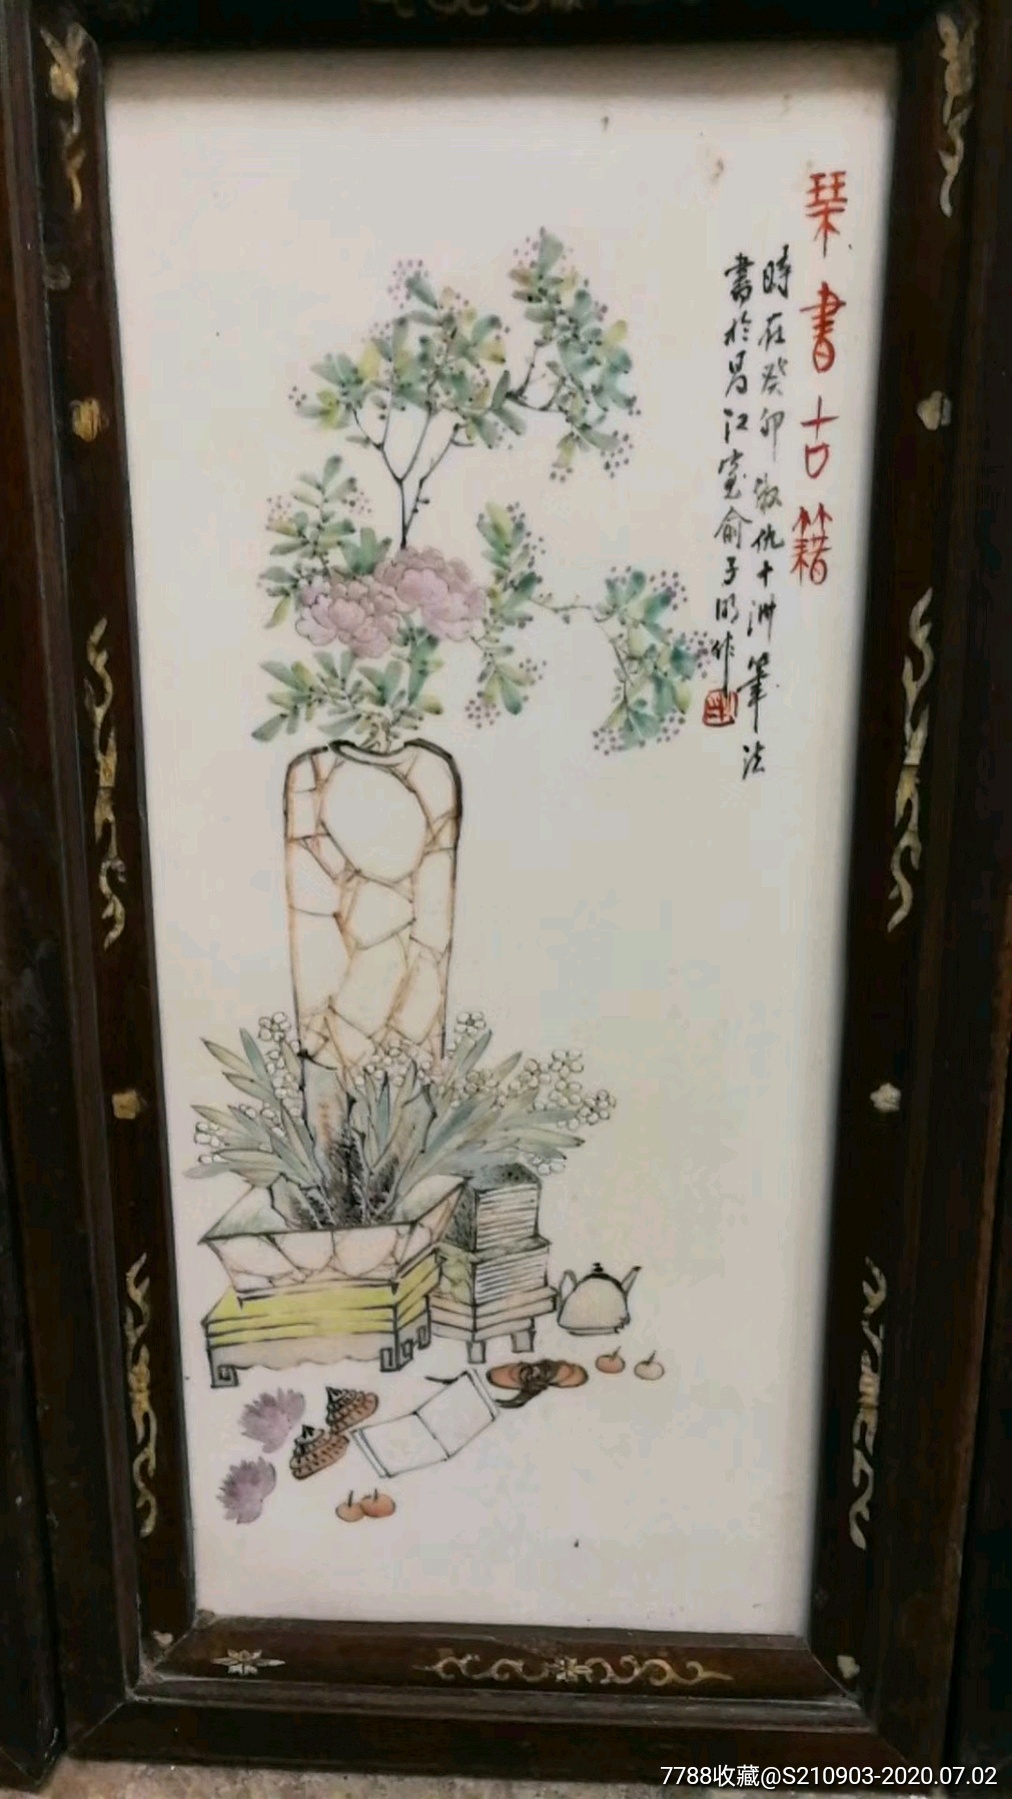 琹書古籍
時在癸卯倣仇十洲筆法
書於昌江窓俞子明作
7788收藏@S210903-2020.07.02